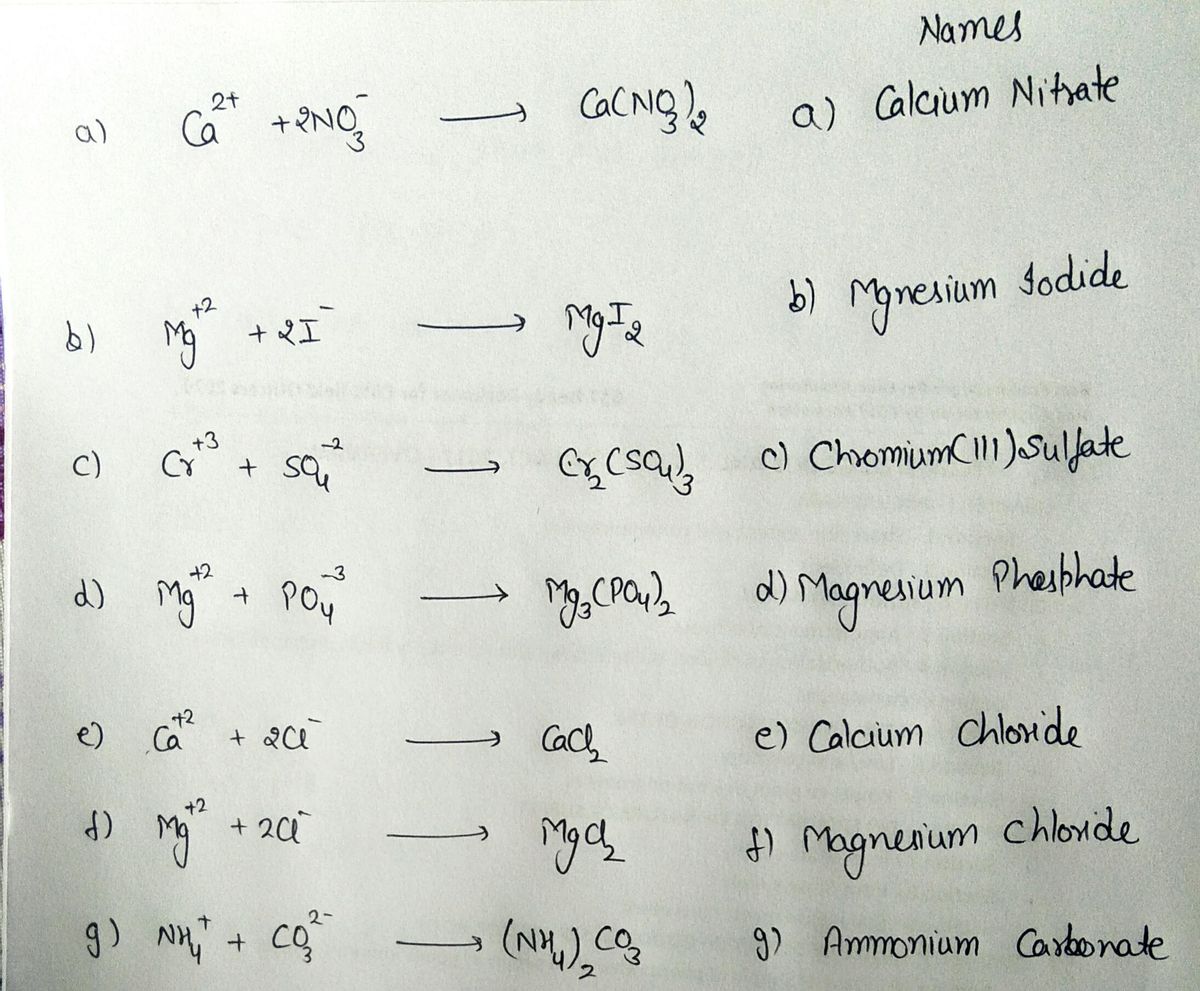 Names
a) Ca²⁺ + 2NO₃⁻ → Ca(NO₃)₂ a) Calcium Nitrate
b) Mg⁺² + 2I⁻ → MgI₂ b) Mgnesium Iodide
c) Cr⁺³ + SO₄⁻² → Cr₂(SO₄)₃ c) Chromium(III) Sulfate
d) Mg⁺² + PO₄⁻³ → Mg₃(PO₄)₂ d) Magnesium Phosphate
e) Ca⁺² + 2Cl⁻ → CaCl₂ e) Calcium Chloride
f) Mg⁺² + 2Cl⁻ → MgCl₂ f) Magnesium Chloride
g) NH₄⁺ + CO₃²⁻ → (NH₄)₂CO₃ g) Ammonium Carbonate